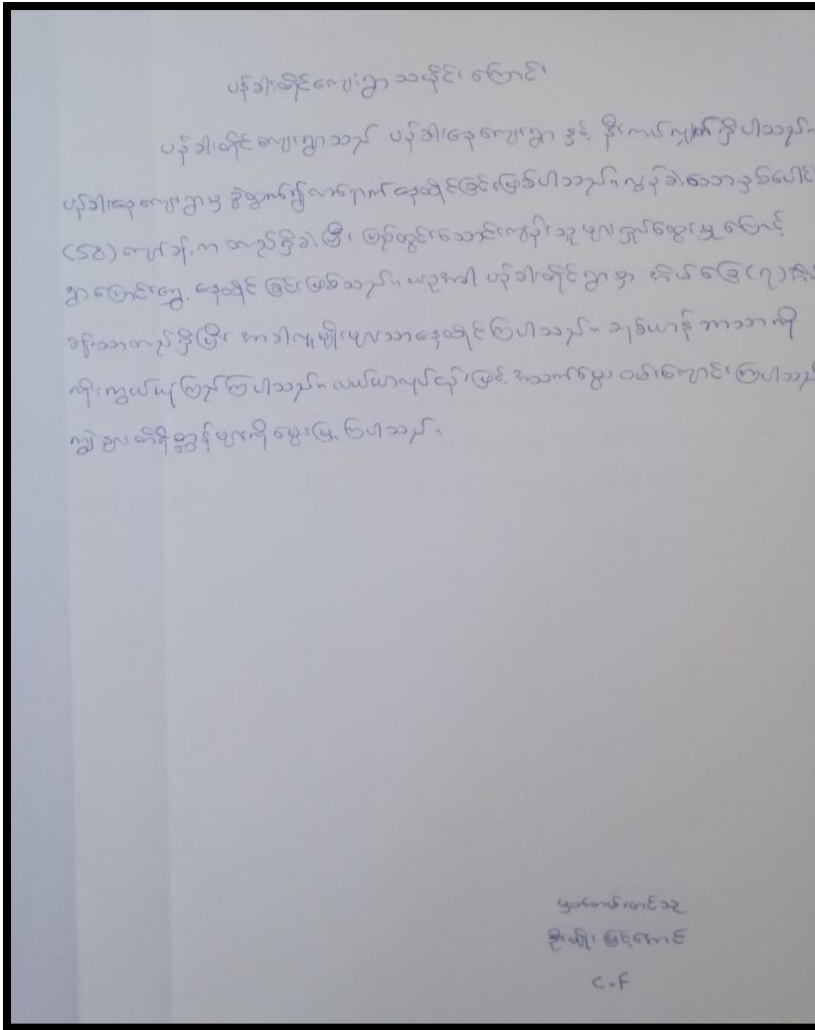 ပန်ခါးထိုင်ကျေးရွာ သမိုင်း ကြောင်း
ပန်ခါးထိုင်ကျေးရွာသည် ပန်ခါးနေကျေးရွာ နှင့် နီးကပ်လျှက်ရှိပါသည်။
ပန်ခါးနေကျေးရွာမှ ခွဲထွက်၍လာရောက်နေထိုင်ခြင်းဖြစ်ပါသည်။ လွန်ခဲ့သောနှစ်ပေါင်း
(၅၀) ကျော်ခန့်က တည်ရှိခဲ့ပြီး ပြည်တွင်းသောင်းကျန်းသူများ နှုတ်
ရွာပြောင်းရွှေ့ နေထိုင်ခြင်းဖြစ်သည်။ ယခုအခါ ပန်ခါးထိုင်ရွာမှာ အိမ်ခြေ (၇) အိမ်
ခန့်သာတည်ရှိပြီး အာခါလူမျိုးများသာနေထိုင်ကြပါသည်။ ခရစ်ယာန် ဘာသာကို
ကိုးကွယ်ယုံကြည်ကြပါသည်။ လယ်ယာလုပ်ငန်းဖြင့် အသက်မွေး ဝမ်းကျောင်းကြပါသည်
ကျွဲ နွား တိရိစ္ဆာန်များကို မွေးမြူကြပါသည်။
မှတ်တမ်းတင်သူ
ဦးထိုး မြင့်အောင်
C.F